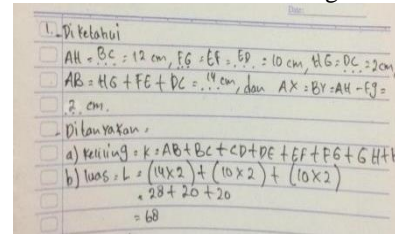 1. Diketahui
AH = BC = 12 cm, FG = EF = ED = 10 cm, HG = DC = 2cm
AB = HG + FE + DC = 14 cm, dan AX = BY = AH - Eg =
2 cm.
- Ditanyakan =
a) Keliling = K = AB + BC + CD + DE + EF + FG + GH +
b) luas = L = (14x2) + (10x2) + (10x2)
= 28 + 20 + 20
= 68